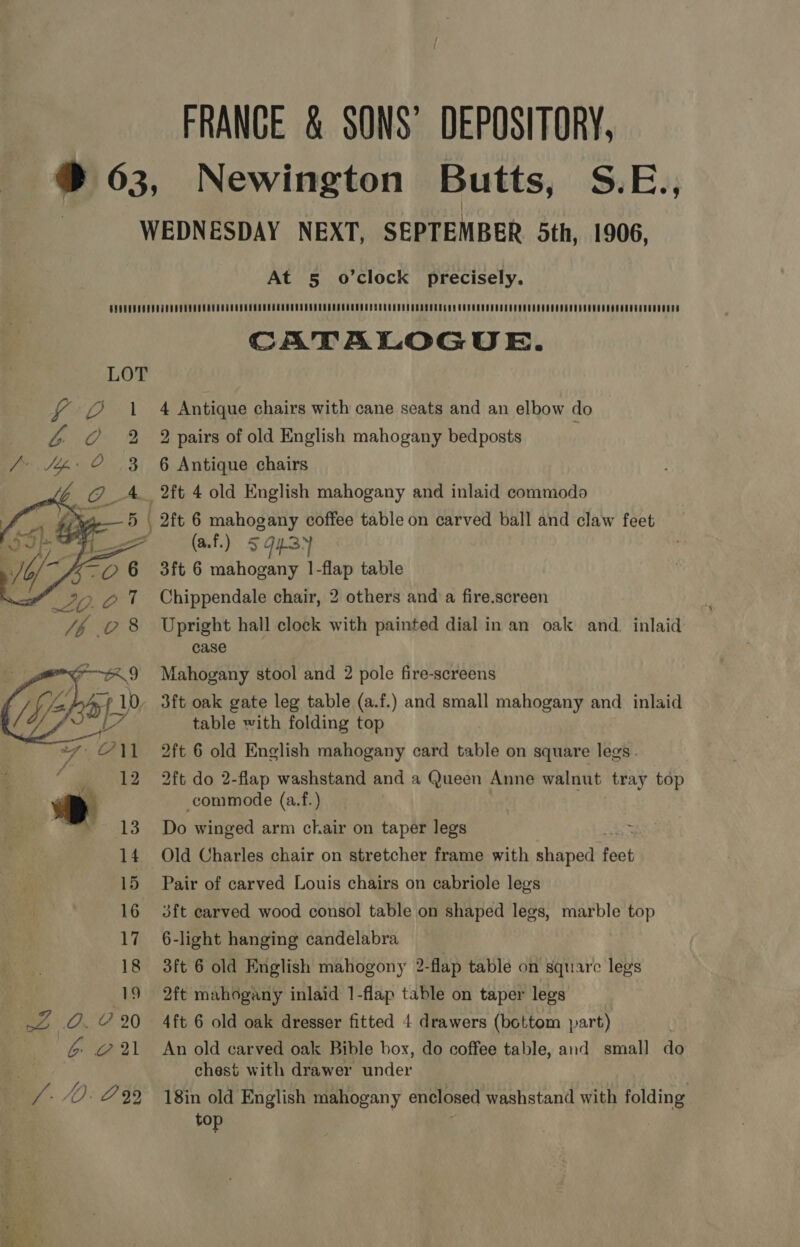 FRANCE & SONS' DEPOSITORY,
63, Newington Butts, S.E.,
WEDNESDAY NEXT, SEPTEMBER 5th, 1906,
At 5 o'clock precisely.
CATALOGUE.
LOT
1 4 Antique chairs with cane seats and an elbow do
2 2 pairs of old English mahogany bedposts
3 6 Antique chairs
4 2ft 4 old English mahogany and inlaid commode
5 2ft 6 mahogany coffee table on carved ball and claw feet
(a.f.)
6 3ft 6 mahogany 1-flap table
7 Chippendale chair, 2 others and a fire.screen
8 Upright hall clock with painted dial in an oak and inlaid
case
9 Mahogany stool and 2 pole fire-screens
10 3ft oak gate leg table (a.f.) and small mahogany and inlaid
table with folding top
11 2ft 6 old English mahogany card table on square legs
12 2ft do 2-flap washstand and a Queen Anne walnut tray top
commode (a.f.)
13 Do winged arm chair on taper legs
14 Old Charles chair on stretcher frame with shaped feet
15 Pair of carved Louis chairs on cabriole legs
16 3ft carved wood consol table on shaped legs, marble top
17 6-light hanging candelabra
18 3ft 6 old English mahogony 2-flap table on square legs
19 2ft mahogany inlaid 1-flap table on taper legs
20 4ft 6 old oak dresser fitted 4 drawers (bottom part)
21 An old carved oak Bible box, do coffee table, and small do
chest with drawer under
22 18in old English mahogany enclosed washstand with folding
top